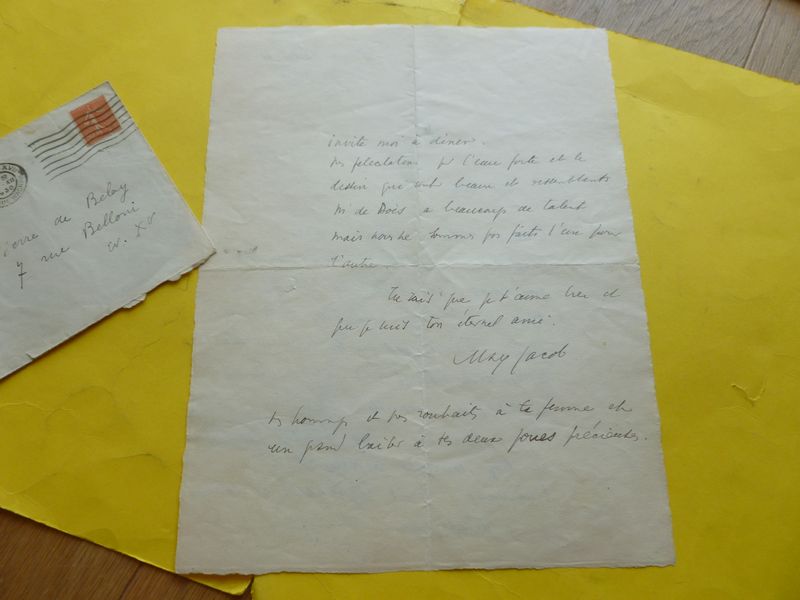 invite moi à dîner.
Mes félicitations pr l'eau forte et le
dessin qui sont beaux et ressemblants
Mr de Boès a beaucoup de talent
mais nous ne sommes pas faits l'un pour
l'autre.
Tu sais que je t'aime bien et
que je suis ton éternel ami.
Max Jacob
Mes hommages et mes souhaits à ta femme et
un grand baiser à tes deux joues précieuses.
ierre de Belay
7 rue Belloni
XV